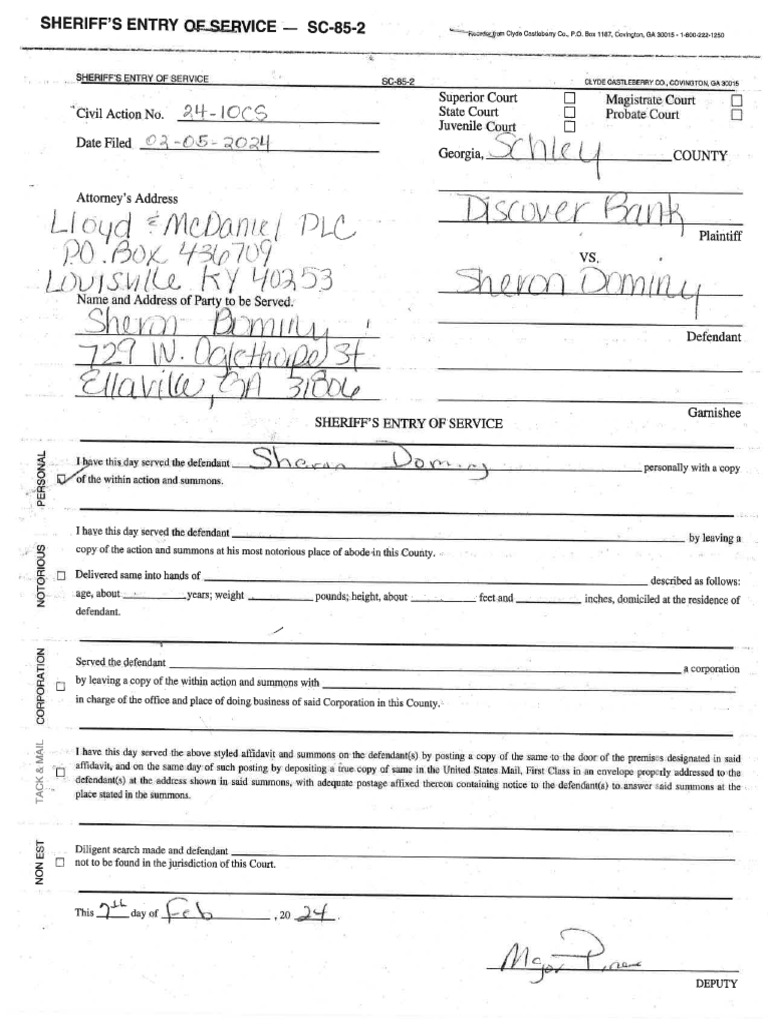 SHERIFF'S ENTRY OF SERVICE — SC-85-2
Reorder from Clyde Castleberry Co., P.O. Box 1187, Covington, GA 30015 - 1-800-222-1250
SHERIFF'S ENTRY OF SERVICE SC-85-2 CLYDE CASTLEBERRY CO., COVINGTON, GA 30015
Civil Action No. 24-10CS
Date Filed 02-05-2024
Superior Court ☐ Magistrate Court ☐
State Court ☐ Probate Court ☐
Juvenile Court ☐
Georgia, Schley COUNTY
Attorney's Address
Lloyd & McDaniel PLC
P.O. Box 436709
Louisville KY 40253
Discover Bank
Plaintiff
VS.
Sheron Dominy
Defendant
Garnishee
Name and Address of Party to be Served.
Sheron Dominy
729 W. Oglethorpe St
Ellaville, GA 31806
SHERIFF'S ENTRY OF SERVICE
PERSONAL
I have this day served the defendant Sheron Dominy personally with a copy
☑ of the within action and summons.
NOTORIOUS
I have this day served the defendant by leaving a
copy of the action and summons at his most notorious place of abode in this County.
☐ Delivered same into hands of described as follows:
age, about years; weight pounds; height, about feet and inches, domiciled at the residence of
defendant.
CORPORATION
Served the defendant a corporation
☐ by leaving a copy of the within action and summons with
in charge of the office and place of doing business of said Corporation in this County.
TACK & MAIL
I have this day served the above styled affidavit and summons on the defendant(s) by posting a copy of the same to the door of the premises designated in said
☐ affidavit, and on the same day of such posting by depositing a true copy of same in the United States Mail, First Class in an envelope properly addressed to the
defendant(s) at the address shown in said summons, with adequate postage affixed thereon containing notice to the defendant(s) to answer said summons at the
place stated in the summons.
NON EST
Diligent search made and defendant
☐ not to be found in the jurisdiction of this Court.
This 7th day of Feb , 20 24.
DEPUTY